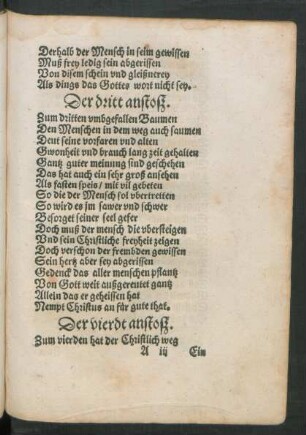 Derhalb der Mensch in seim gewissen
Muß frey ledig sein abgerissen
Von disem schein vnd gleißnerey
Als dings das Gottes wort nicht sey.
Der dritt anstoß.
Zum dritten vmbgefallen Baumen
Den Menschen in dem weg auch saumen
Deut seine vorfaren vnd alten
Gwonheit vnd brauch lang zeit gehalten
Gantz guter meinung sind geschehen
Das hat auch ein sehr groß ansehen
Als fasten speis/ mit vil gebeten
So die der Mensch sol vbertretten
So wird es jm sawer vnd schwer
Besorget seiner seel gefer
Doch muß der mensch die vbersteigen
Vnd sein Christliche freyheit zeigen
Doch verschon der frembden gewissen
Sein hertz aber sey abgerissen
Gedenck das aller menschen pflantz
Von Gott weit außgereutet gantz
Allein das er geheissen hat
Nempt Christus an für gute that.
Der vierdt anstoß.
Zum vierden hat der Christlich weg
A iij Ein